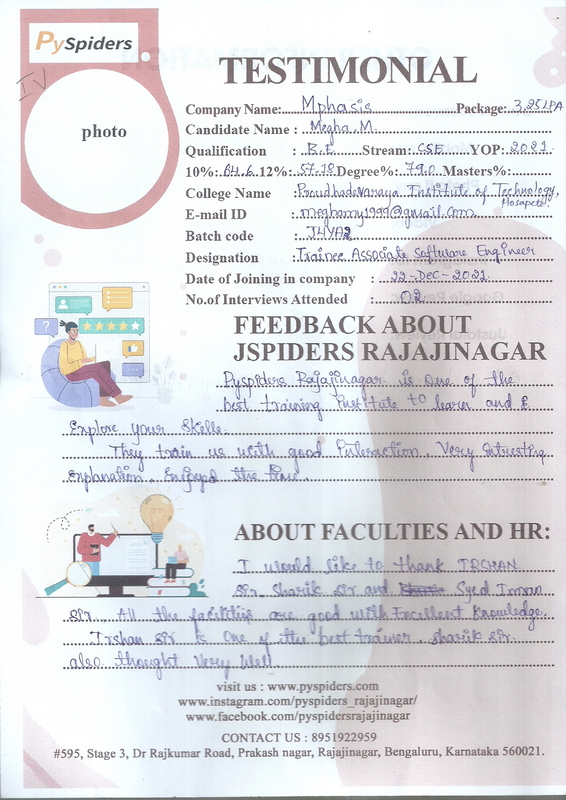 PySpiders
IV
TESTIMONIAL
photo
Company Name: Mphasis Package: 3.25LPA
Candidate Name : Megha.M.
Qualification : B.E. Stream: CSE YOP: 2021.
10%: 84.6 12%: 57.18 Degree%: 79.0 Masters%:
College Name : Proudhadevaraya Institute of Technology,
Hosapete
E-mail ID :
Batch code : J4YA2
Designation : Trainee Associate Software Engineer
Date of Joining in company : 22-Dec-2021.
No.of Interviews Attended : 02
FEEDBACK ABOUT
JSPIDERS RAJAJINAGAR
Pyspiders Rajajinagar is One of the
best training Institute to learn and E
Explore your Skills.
They train us with good Interaction. Very Intresting
explanation. Enjoyed the time.
ABOUT FACULTIES AND HR:
I would like to thank IRSHAN
sir Sharik sir and Syed Imran
sir. All the facilities are good with Excellent Knowledge.
Irshan sir is One of the best trainer sharik sir
also thought Very Well
visit us : www.pyspiders.com
www.instagram.com/pyspiders_rajajinagar/
www.facebook.com/pyspidersrajajinagar
CONTACT US : 8951922959
#595, Stage 3, Dr Rajkumar Road, Prakash nagar, Rajajinagar, Bengaluru, Karnataka 560021.